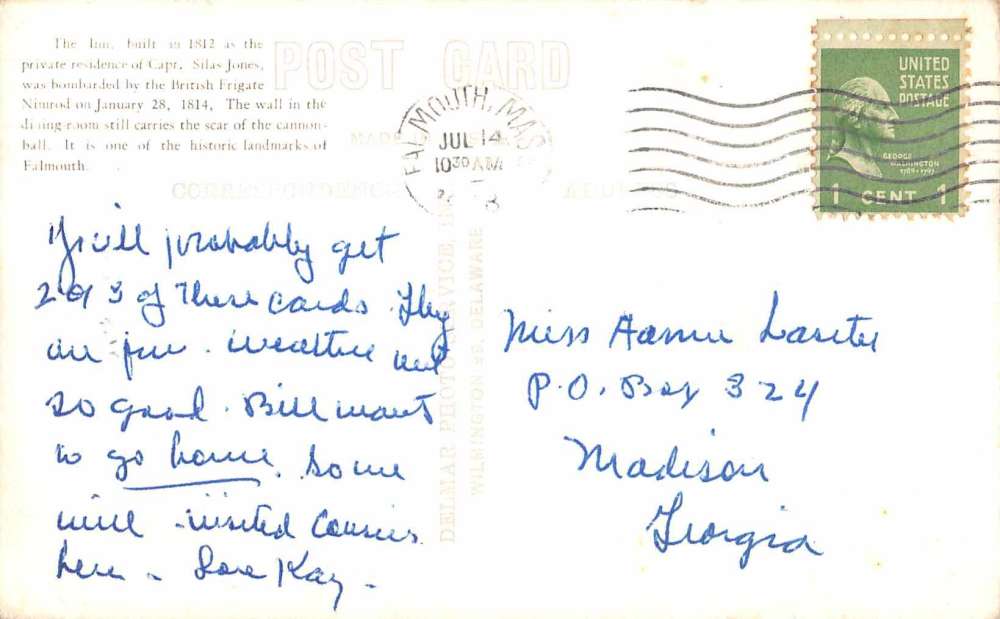 The Inn, built in 1812 as the
private residence of Capt. Silas Jones,
was bombarded by the British Frigate
Nimrod on January 28, 1814. The wall in the
dining-room still carries the scar of the cannon-
ball. It is one of the historic landmarks of
Falmouth.
POST CARD
MADE IN
CORRESPONDENCE
ADDRESS
FALMOUTH, MASS
JUL 14
10 30 AM
UNITED
STATES
POSTAGE
GEORGE
WASHINGTON
1789-1797
1 CENT 1
You'll probably get
2 or 3 of these cards. They
are free. Weather not
so good. Bill wants
to go home. So we
will - visited cousins
here - Love Kay -
DELMAR PHOTO SERVICE,
WILMINGTON, DELAWARE
Miss
P.O. Box 324
Madison
Georgia